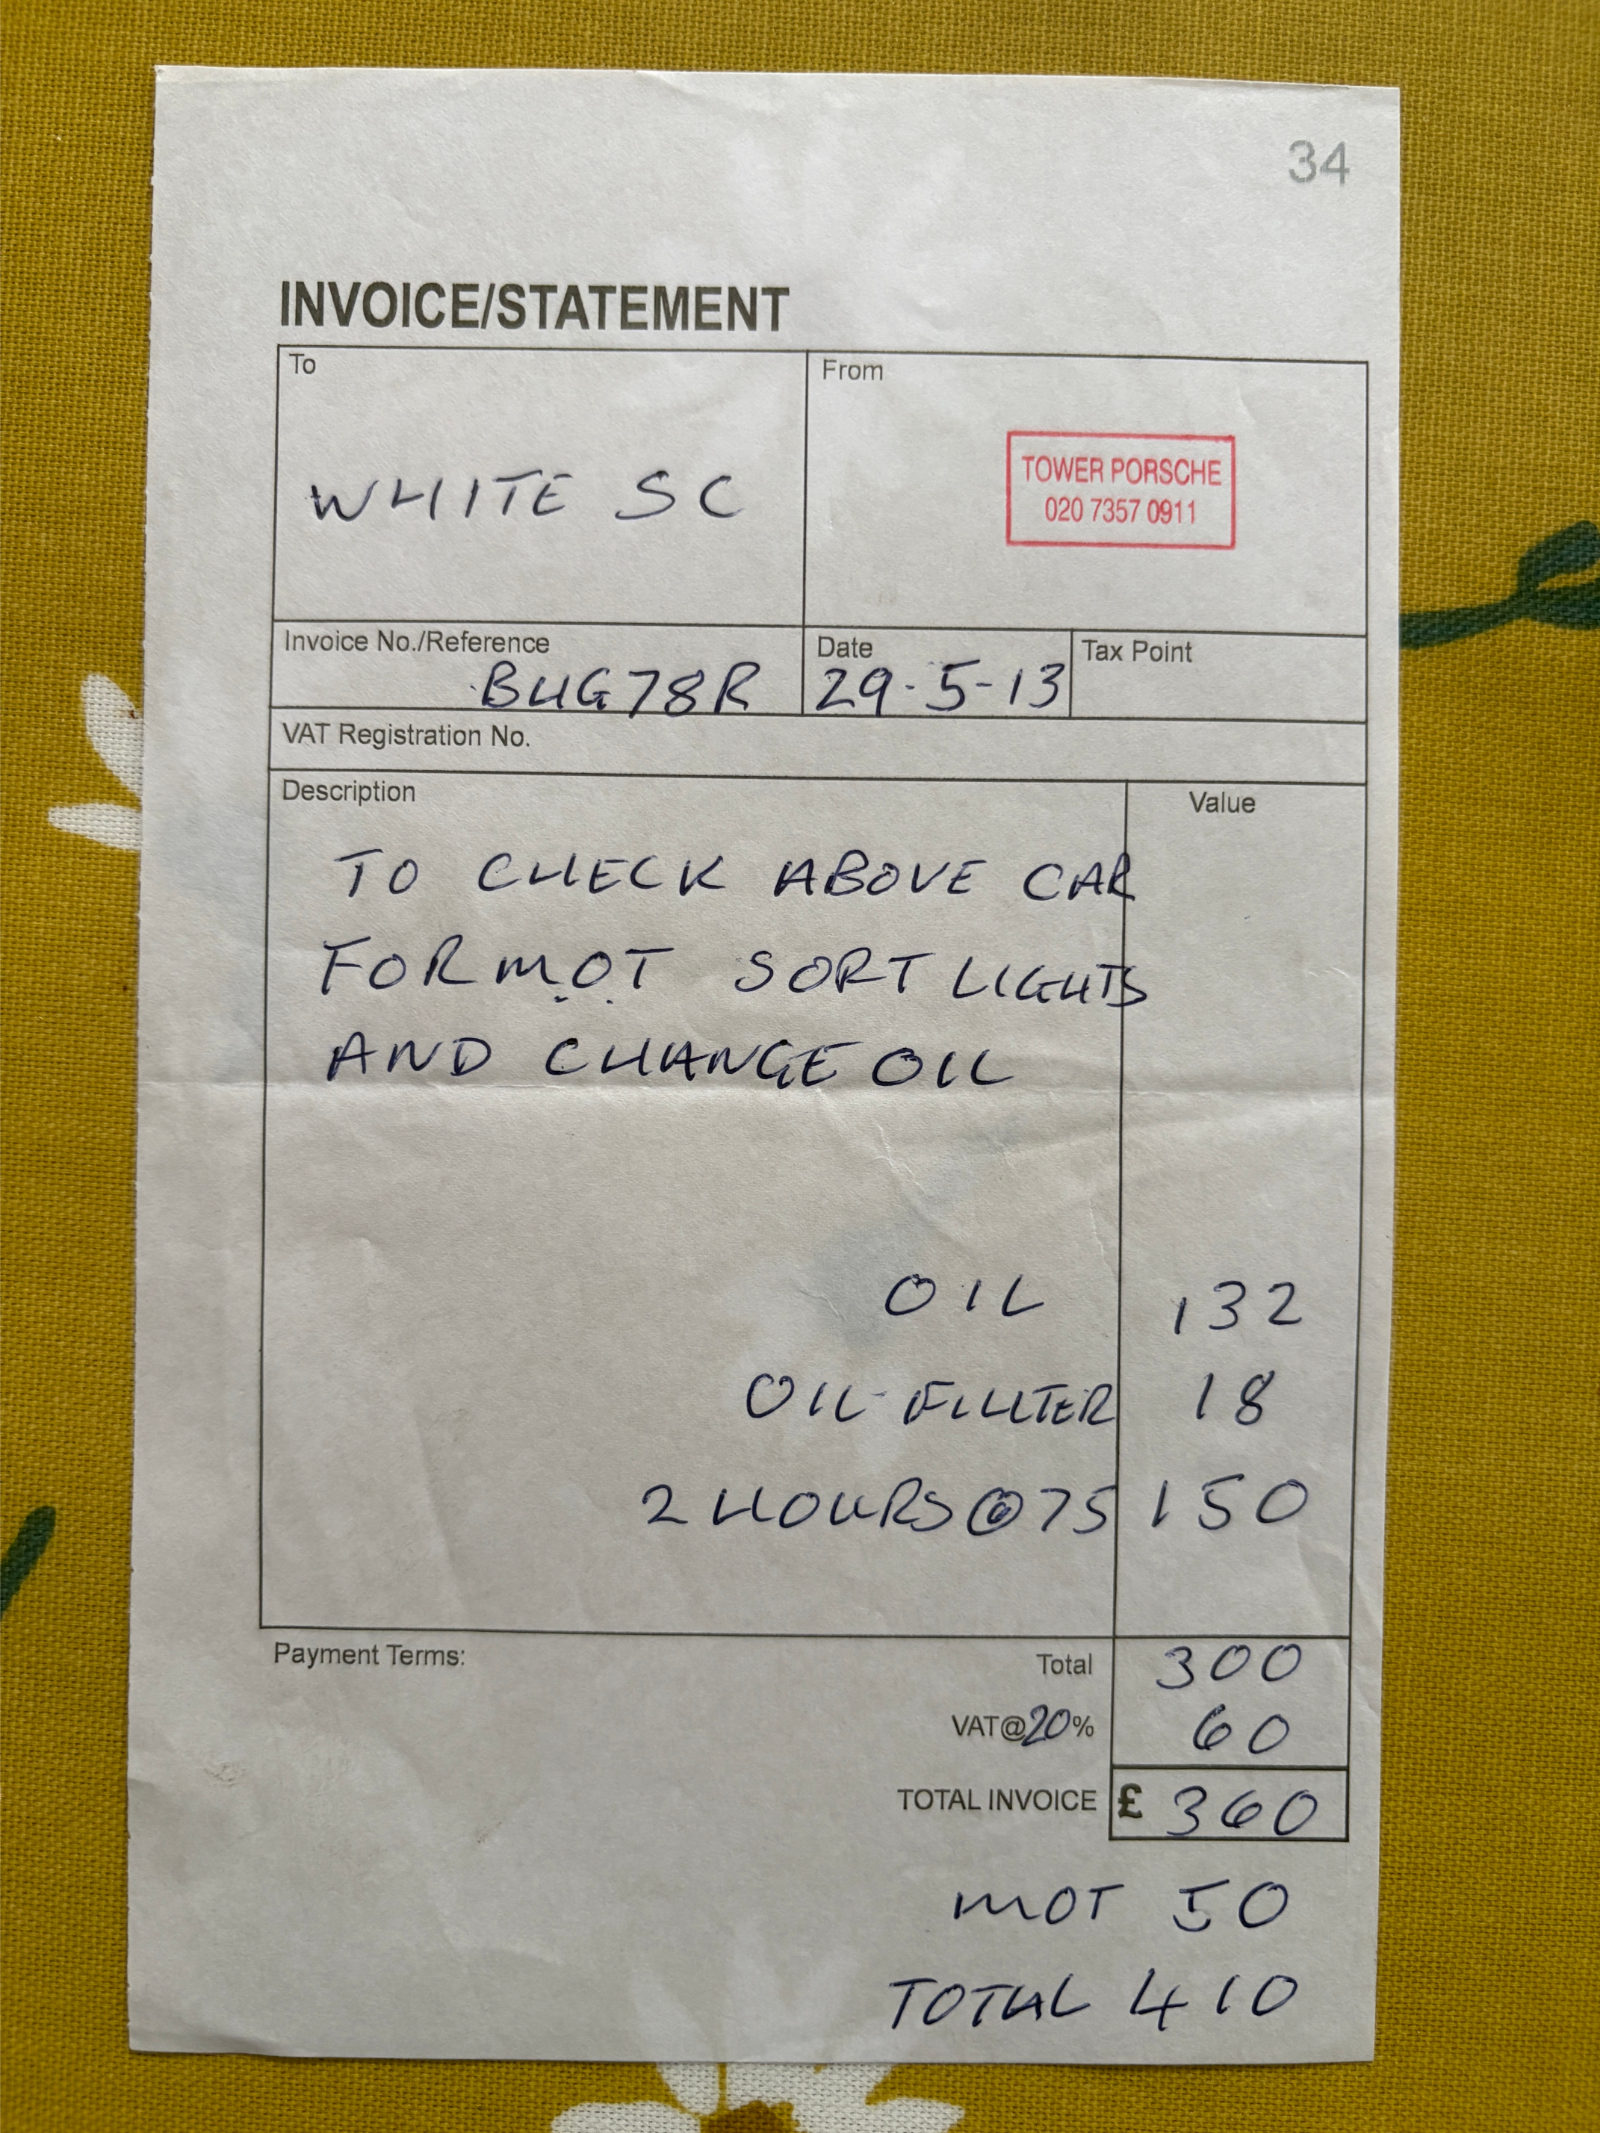 34
INVOICE/STATEMENT
To
From
WHITE SC
TOWER PORSCHE
020 7357 0911
Invoice No./Reference
BUG78R
Date
29-5-13
Tax Point
VAT Registration No.
Description
Value
TO CHECK ABOVE CAR
FOR M.O.T SORT LIGHTS
AND CHANGE OIL
OIL 132
OIL FILLTER 18
2 HOURS @ 75 150
Payment Terms:
Total 300
VAT@20% 60
TOTAL INVOICE £ 360
MOT 50
TOTAL 410